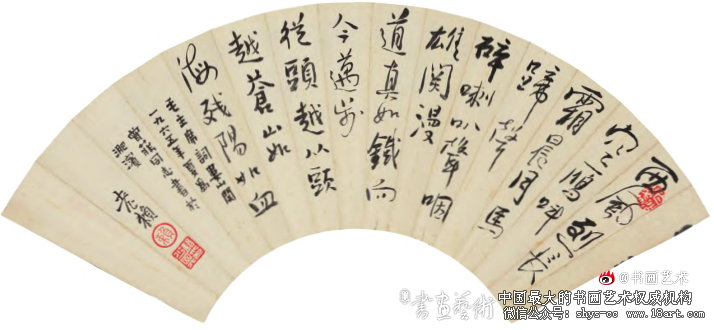 西風烈長
空鴈叫
霜晨月馬
蹄聲
碎喇叭聲咽
雄関漫
道真如鐵而
今邁步
從頭越從頭
越蒼山如
海殘陽如血
毛主席詞婁山関
一九六五年夏
同志書於
@书画艺术
書画藝術
中国最大的书画艺术权威机构
微信公众号：shys-cc www.18art.com